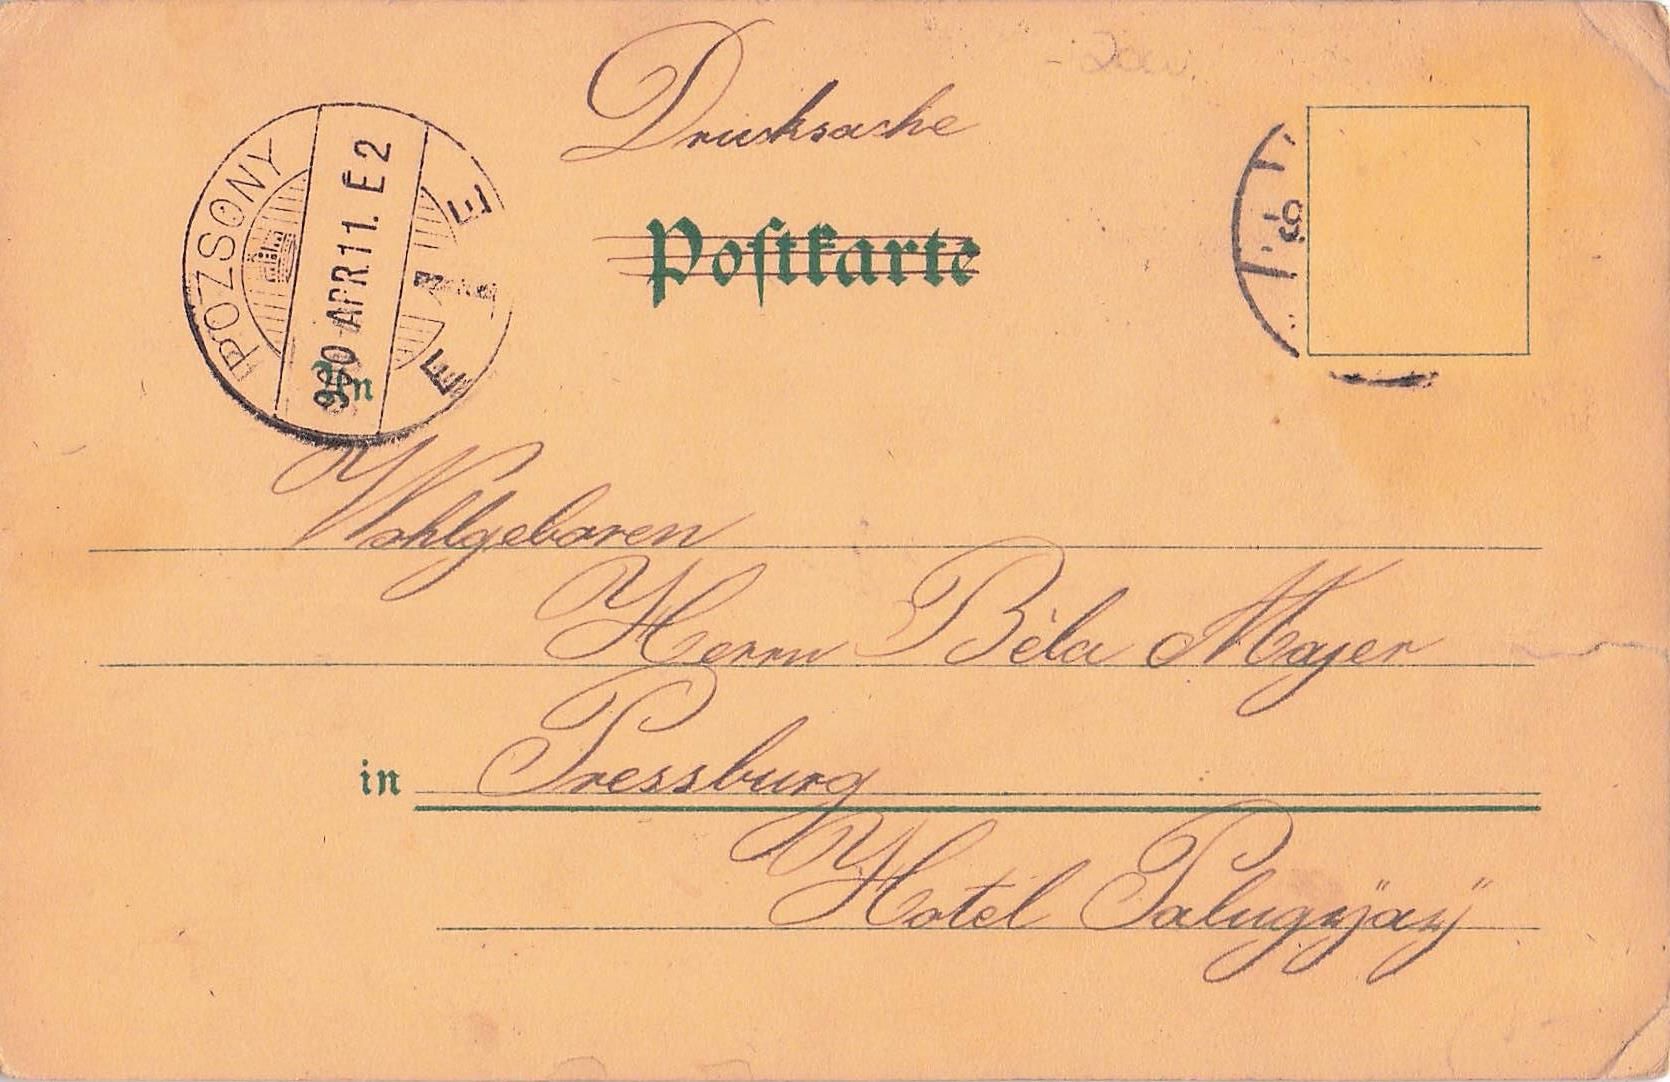 Drucksache
Postkarte
POZSONY
900 APR 11. E 2
An
Wohlgeboren
Herrn Béla Mayer
in Pressburg
Hotel Palugyjay